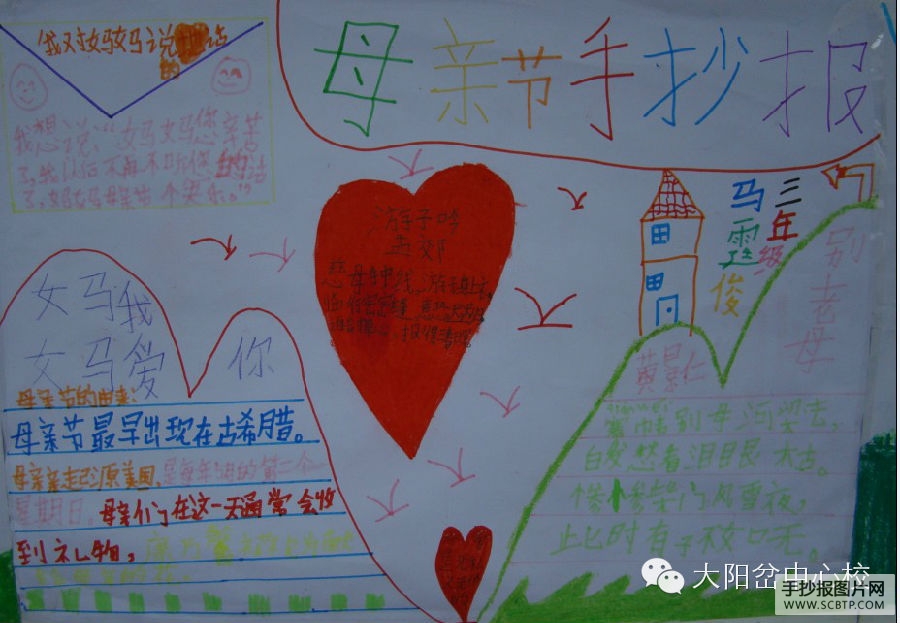 我对妈妈说的话
母亲节手抄报
我想说:“妈妈您辛苦
了,我以后不再不听您的话
了,妈妈母亲节快乐。”
三年级
马霪俊
游子吟
孟郊
慈母手中线,游子身上衣,
临行密密缝,意恐迟迟归,
报得
妈妈我
妈妈爱你
母亲节的由来:
母亲节最早出现在古希腊。
母亲节起源美国,是每年 的第二个
星期日,母亲们在这一天通常会收
到礼物,
别老母
黄景仁
搴帏别母河梁去,
白发愁看泪眼枯。
惨惨柴门风雪夜,
此时有子不如无。
大阳岔中心校
手抄报图片网
WWW.SCBTP.COM